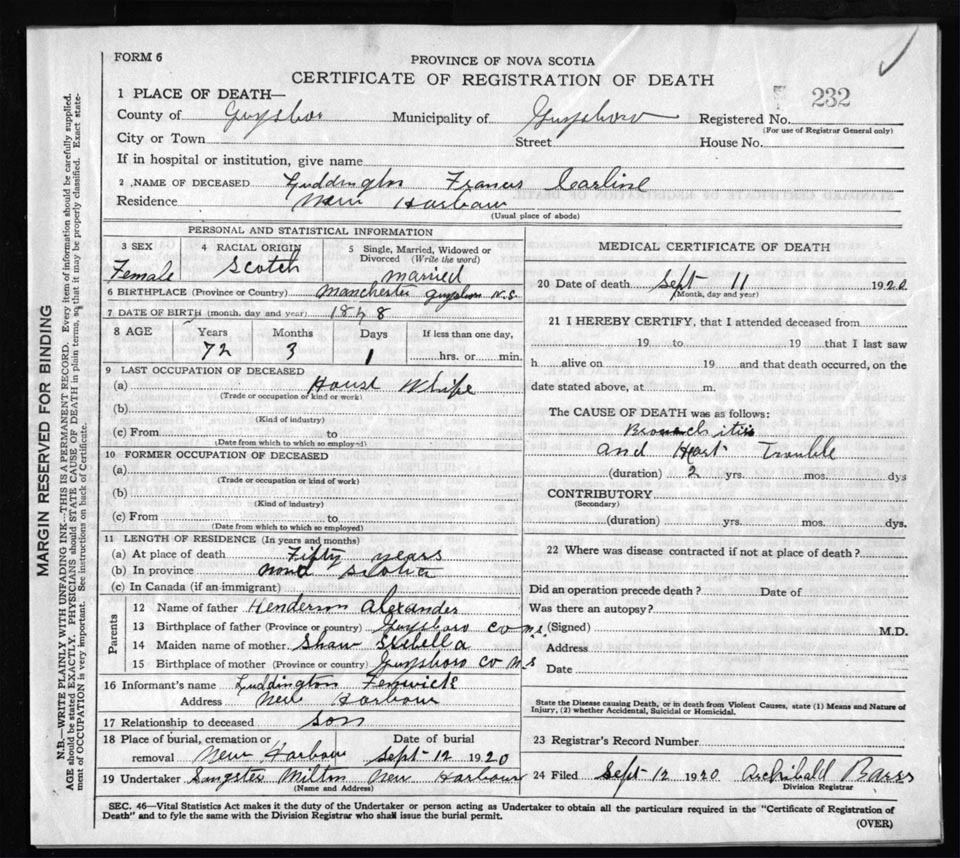 FORM 6
PROVINCE OF NOVA SCOTIA
CERTIFICATE OF REGISTRATION OF DEATH
232
1 PLACE OF DEATH—
County of Guysboro Municipality of Guysboro Registered No.
(For use of Registrar General only)
City or Town Street House No.
If in hospital or institution, give name
2 NAME OF DECEASED Luddington Francis Carline
Residence New Harbour
(Usual place of abode)
PERSONAL AND STATISTICAL INFORMATION
3 SEX 4 RACIAL ORIGIN 5 Single, Married, Widowed or
Divorced (Write the word)
Female Scotch married
6 BIRTHPLACE (Province or Country) Manchester Guysboro N.S
7 DATE OF BIRTH (month, day and year) 1848
8 AGE Years Months Days If less than one day,
72 3 1 hrs. or min.
9 LAST OCCUPATION OF DECEASED
(a) House Whife
(Trade or occupation or kind or work)
(b)
(Kind of industry)
(c) From to
(Date from which to which so employed)
10 FORMER OCCUPATION OF DECEASED
(a)
(Trade or occupation or kind of work)
(b)
(Kind of industry)
(c) From to
(Date from which to which so employed)
11 LENGTH OF RESIDENCE (In years and months)
(a) At place of death Fifty years
(b) In province Nova Scotia
(c) In Canada (if an immigrant)
Parents
12 Name of father Henderson Alexander
13 Birthplace of father (Province or country) Guysboro Co N.S.
14 Maiden name of mother Shaw Isebella
15 Birthplace of mother (Province or country) Guysboro Co N S
16 Informant's name Luddington Fenwick
Address New Harbour
17 Relationship to deceased son
18 Place of burial, cremation or Date of burial
removal New Harbour Sept 12 1920
19 Undertaker Sangster Milton New Harbour
(Name and Address)
MEDICAL CERTIFICATE OF DEATH
20 Date of death Sept 11 1920
(Month, day and year)
21 I HEREBY CERTIFY, that I attended deceased from
19 to 19 that I last saw
h alive on 19 and that death occurred, on the
date stated above, at m.
The CAUSE OF DEATH was as follows:
Bronchitis
and Hart Trouble
(duration) 2 yrs. mos. dys
CONTRIBUTORY
(Secondary)
(duration) yrs. mos. dys.
22 Where was disease contracted if not at place of death?
Did an operation precede death? Date of
Was there an autopsy?
(Signed) M.D.
Address
Date
State the Disease causing Death, or in death from Violent Causes, state (1) Means and Nature of
Injury, (2) whether Accidental, Suicidal or Homicidal.
23 Registrar's Record Number
24 Filed Sept 12 1920 Archibald Barss
Division Registrar
SEC. 46—Vital Statistics Act makes it the duty of the Undertaker or person acting as Undertaker to obtain all the particulars required in the "Certificate of Registration of
Death" and to fyle the same with the Division Registrar who shall issue the burial permit.
(OVER)
MARGIN RESERVED FOR BINDING
N.B.—WRITE PLAINLY WITH UNFADING INK—THIS IS A PERMANENT RECORD. Every item of information should be carefully supplied.
AGE should be stated EXACTLY. PHYSICIANS should STATE CAUSE OF DEATH in plain terms, so that it may be properly classified. Exact state-
ment of OCCUPATION is very important. See instructions on back of Certificate.